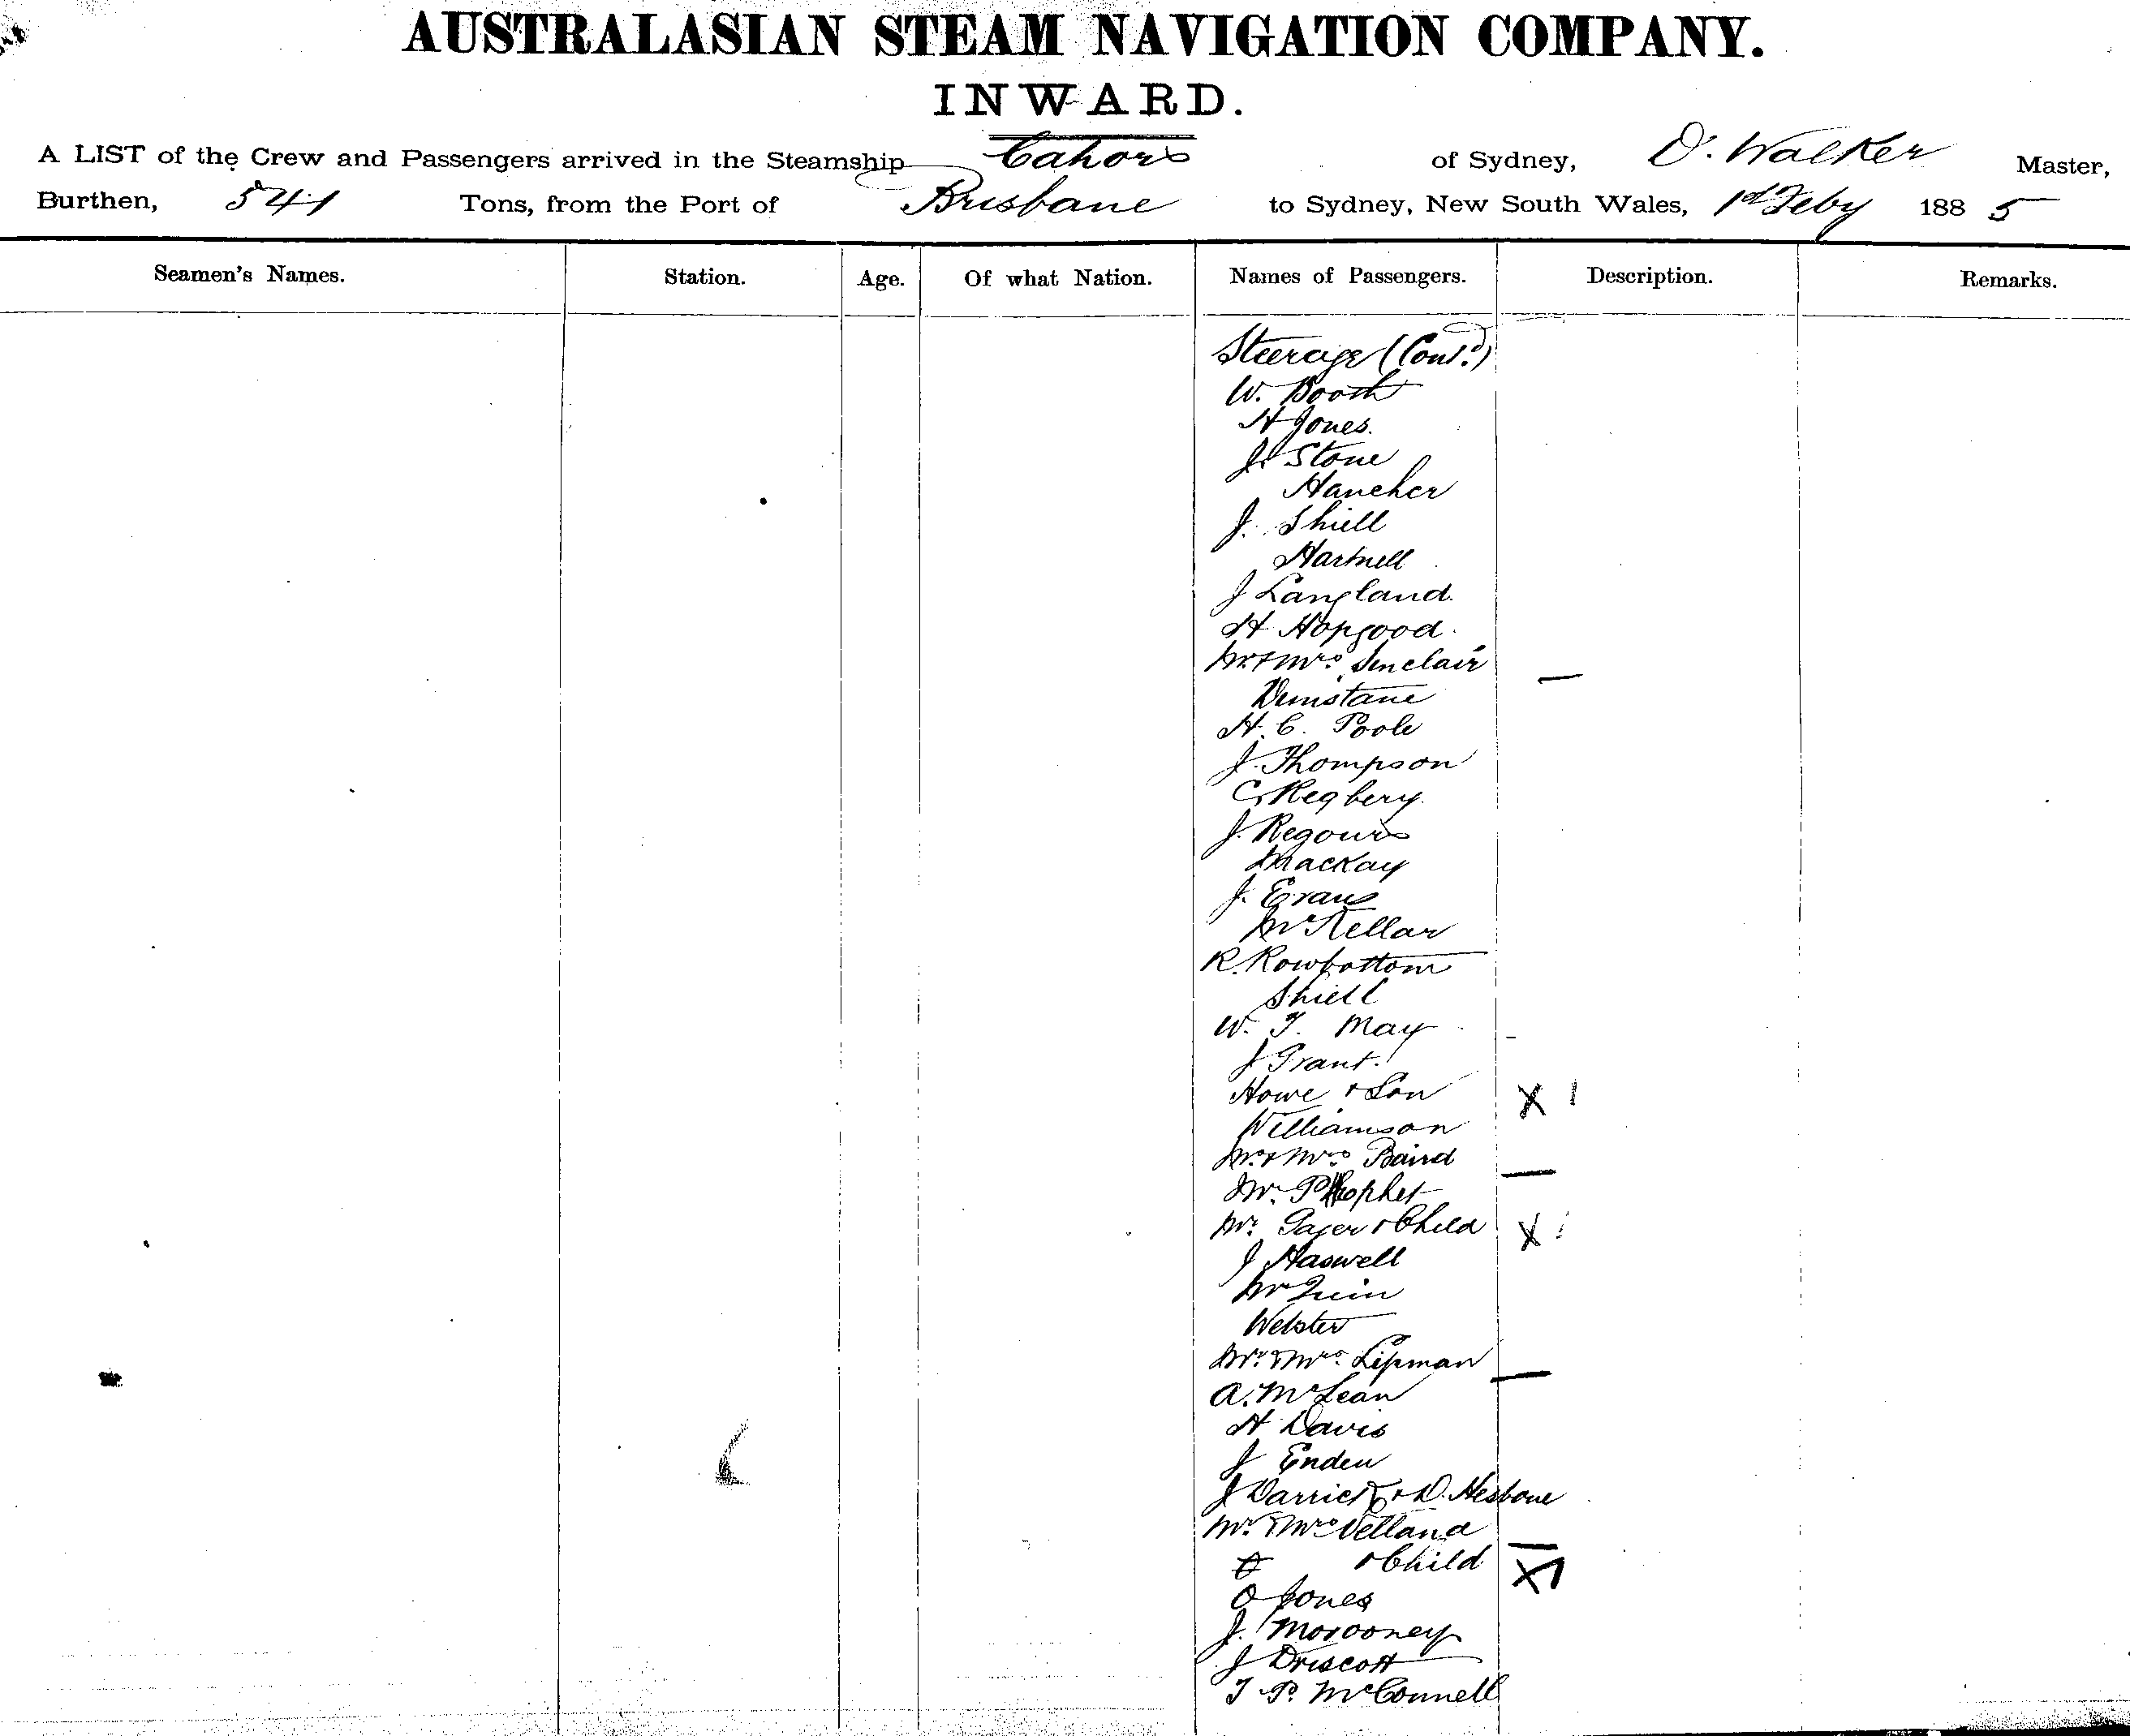 AUSTRALASIAN STEAM NAVIGATION COMPANY.
INWARD.
A LIST of the Crew and Passengers arrived in the Steamship Cahors of Sydney, D. Walker Master,
Burthen, 541 Tons, from the Port of Brisbane to Sydney, New South Wales, 1st Feby 1885
Seamen's Names. Station. Age. Of what Nation. Names of Passengers. Description. Remarks.
Steerage (Cont.d)
W. Booth
H Jones.
J. Stone
Hancher
J. Shiell
Hartnell
J Langland.
H Hopgood.
Mr & Mrs Sinclair
Dunstane
H. C. Poole
J. Thompson
C. Regbery.
J. Regours
Mackay
J. Evans
McKellar
R. Rowbottom
Shiell
W. T. May
J Grant.
Howe & Son X 1
Williamson
Mr & Mrs Baird
Mr. Prophet
Mr. Gager & Child X 1
J Haswell
Mr Quin
Webster
Mr. & Mrs. Lipman
A. McLean
H Davis
J Enden
J Darrick & D. Hesbone
Mr. & Mrs Velland
& Child X 1
O Jones
J. Morooney
J Driscott
T. P. McConnell